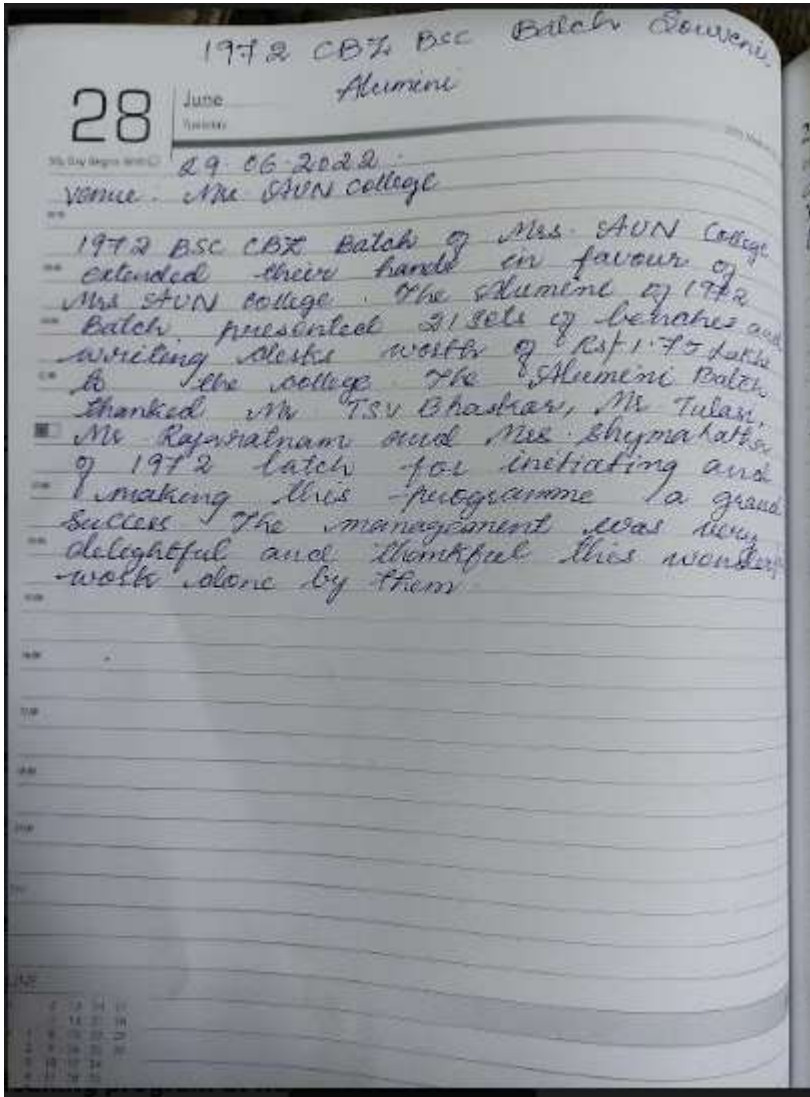 1972 CBZ BSC Batch Souveni
Alumini
28
June
Tuesday
29.06.2022.
Venue. Mrs AVN College
1972 BSC CBZ Batch of Mrs. AVN College
extended their hands in favour of
Mrs AVN College. The Alumini of 1972
Batch presented 21 sets of benches and
writing desks worth of Rs/ 1.75 Lakhs
to the college. The Alumini Batch
thanked Mr TSV Bhaskar, Mr Tulasi,
Mr Rajaratnam and Mrs. Shymalatha
of 1972 batch for initiating and
making this programme a grand
success. The management was very
delightful and thankful this wonderf
work done by them.